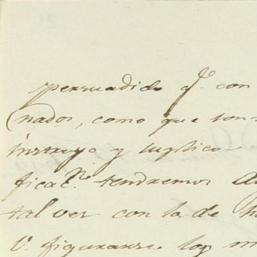 persuadido q.e con
nados, como que son
instruyo y suplico
ficac.n tendremos
tal ver con la de
V. figurarse los m